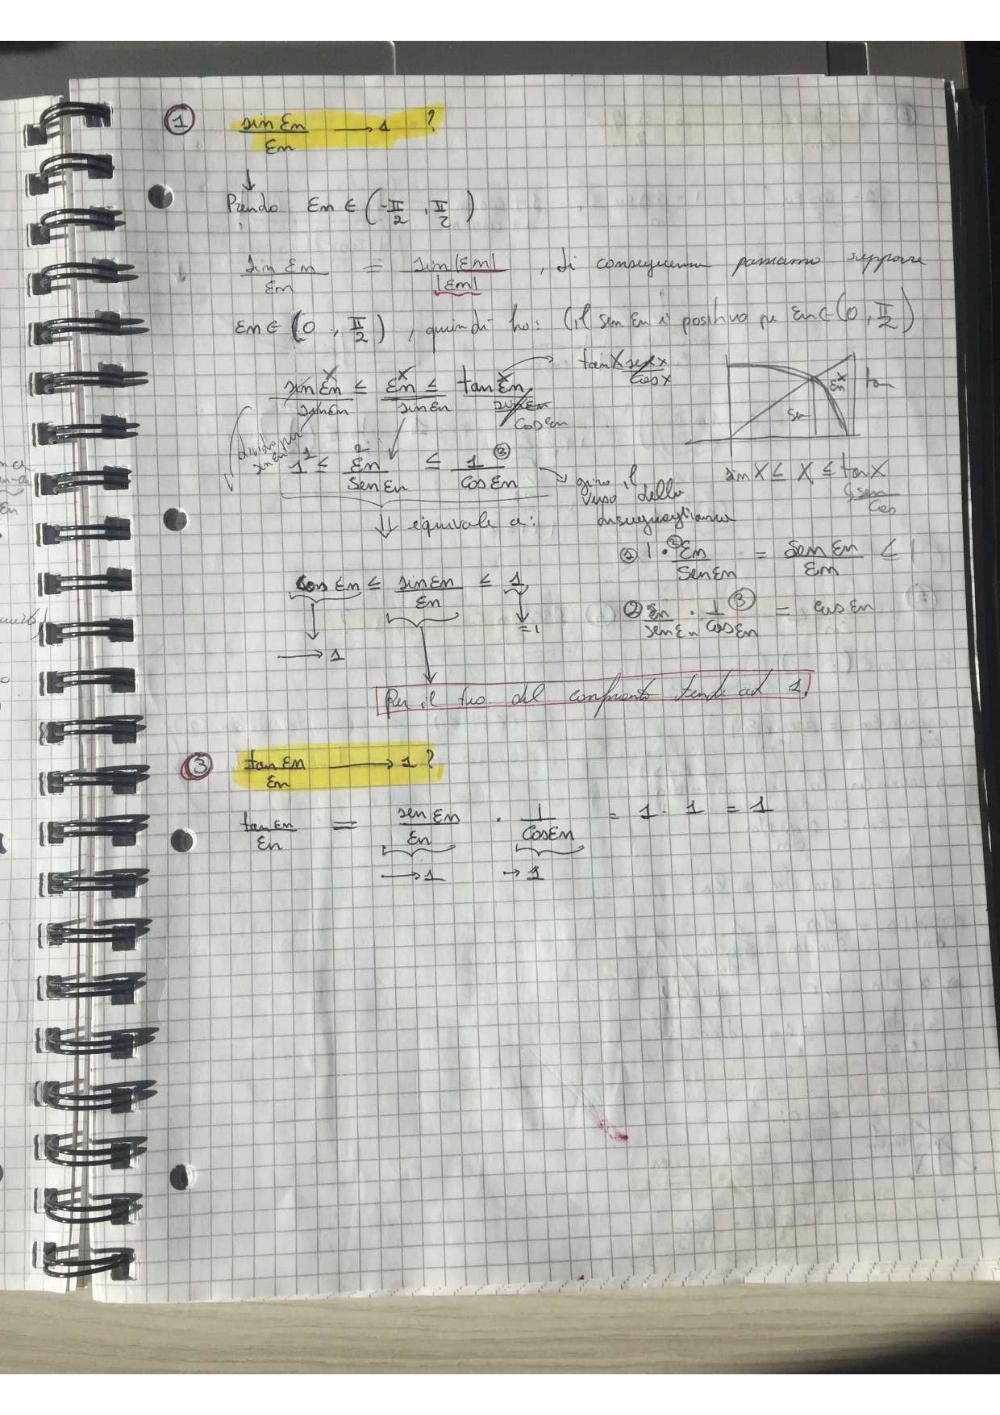 ① sin εn / εn → 1 ?
Prendo εn ∈ (-π/2 , π/2)
sin εn / εn = sin|εn| / |εn| , di conseguenza possiamo supporre
εn ∈ (0 , π/2) , quindi ho: (il sen εn è positivo per εn ∈ (0, π/2)
sin εn / sin εn ≤ εn / sin εn ≤ tan εn
sin εn / cos εn
tan x sen x / cos x
εn
tan
Sen
divido per sin εn
1 ≤ εn / sen εn ≤ 1 / cos εn
giro il verso della
disuguaglianza
sin x ≤ x ≤ tan x
sen / cos
⇓ equivale a:
② 1 · εn / sen εn = sen εn / εn ≤ 1
cos εn ≤ sin εn / εn ≤ 1
② εn / sen εn · 1 / cos εn ③ = cos εn
→ 1
= 1
Per il teo. del confronto tende ad 1
③ tan εn / εn → 1 ?
tan εn / εn = sen εn / εn · 1 / cos εn = 1 · 1 = 1
→ 1 → 1